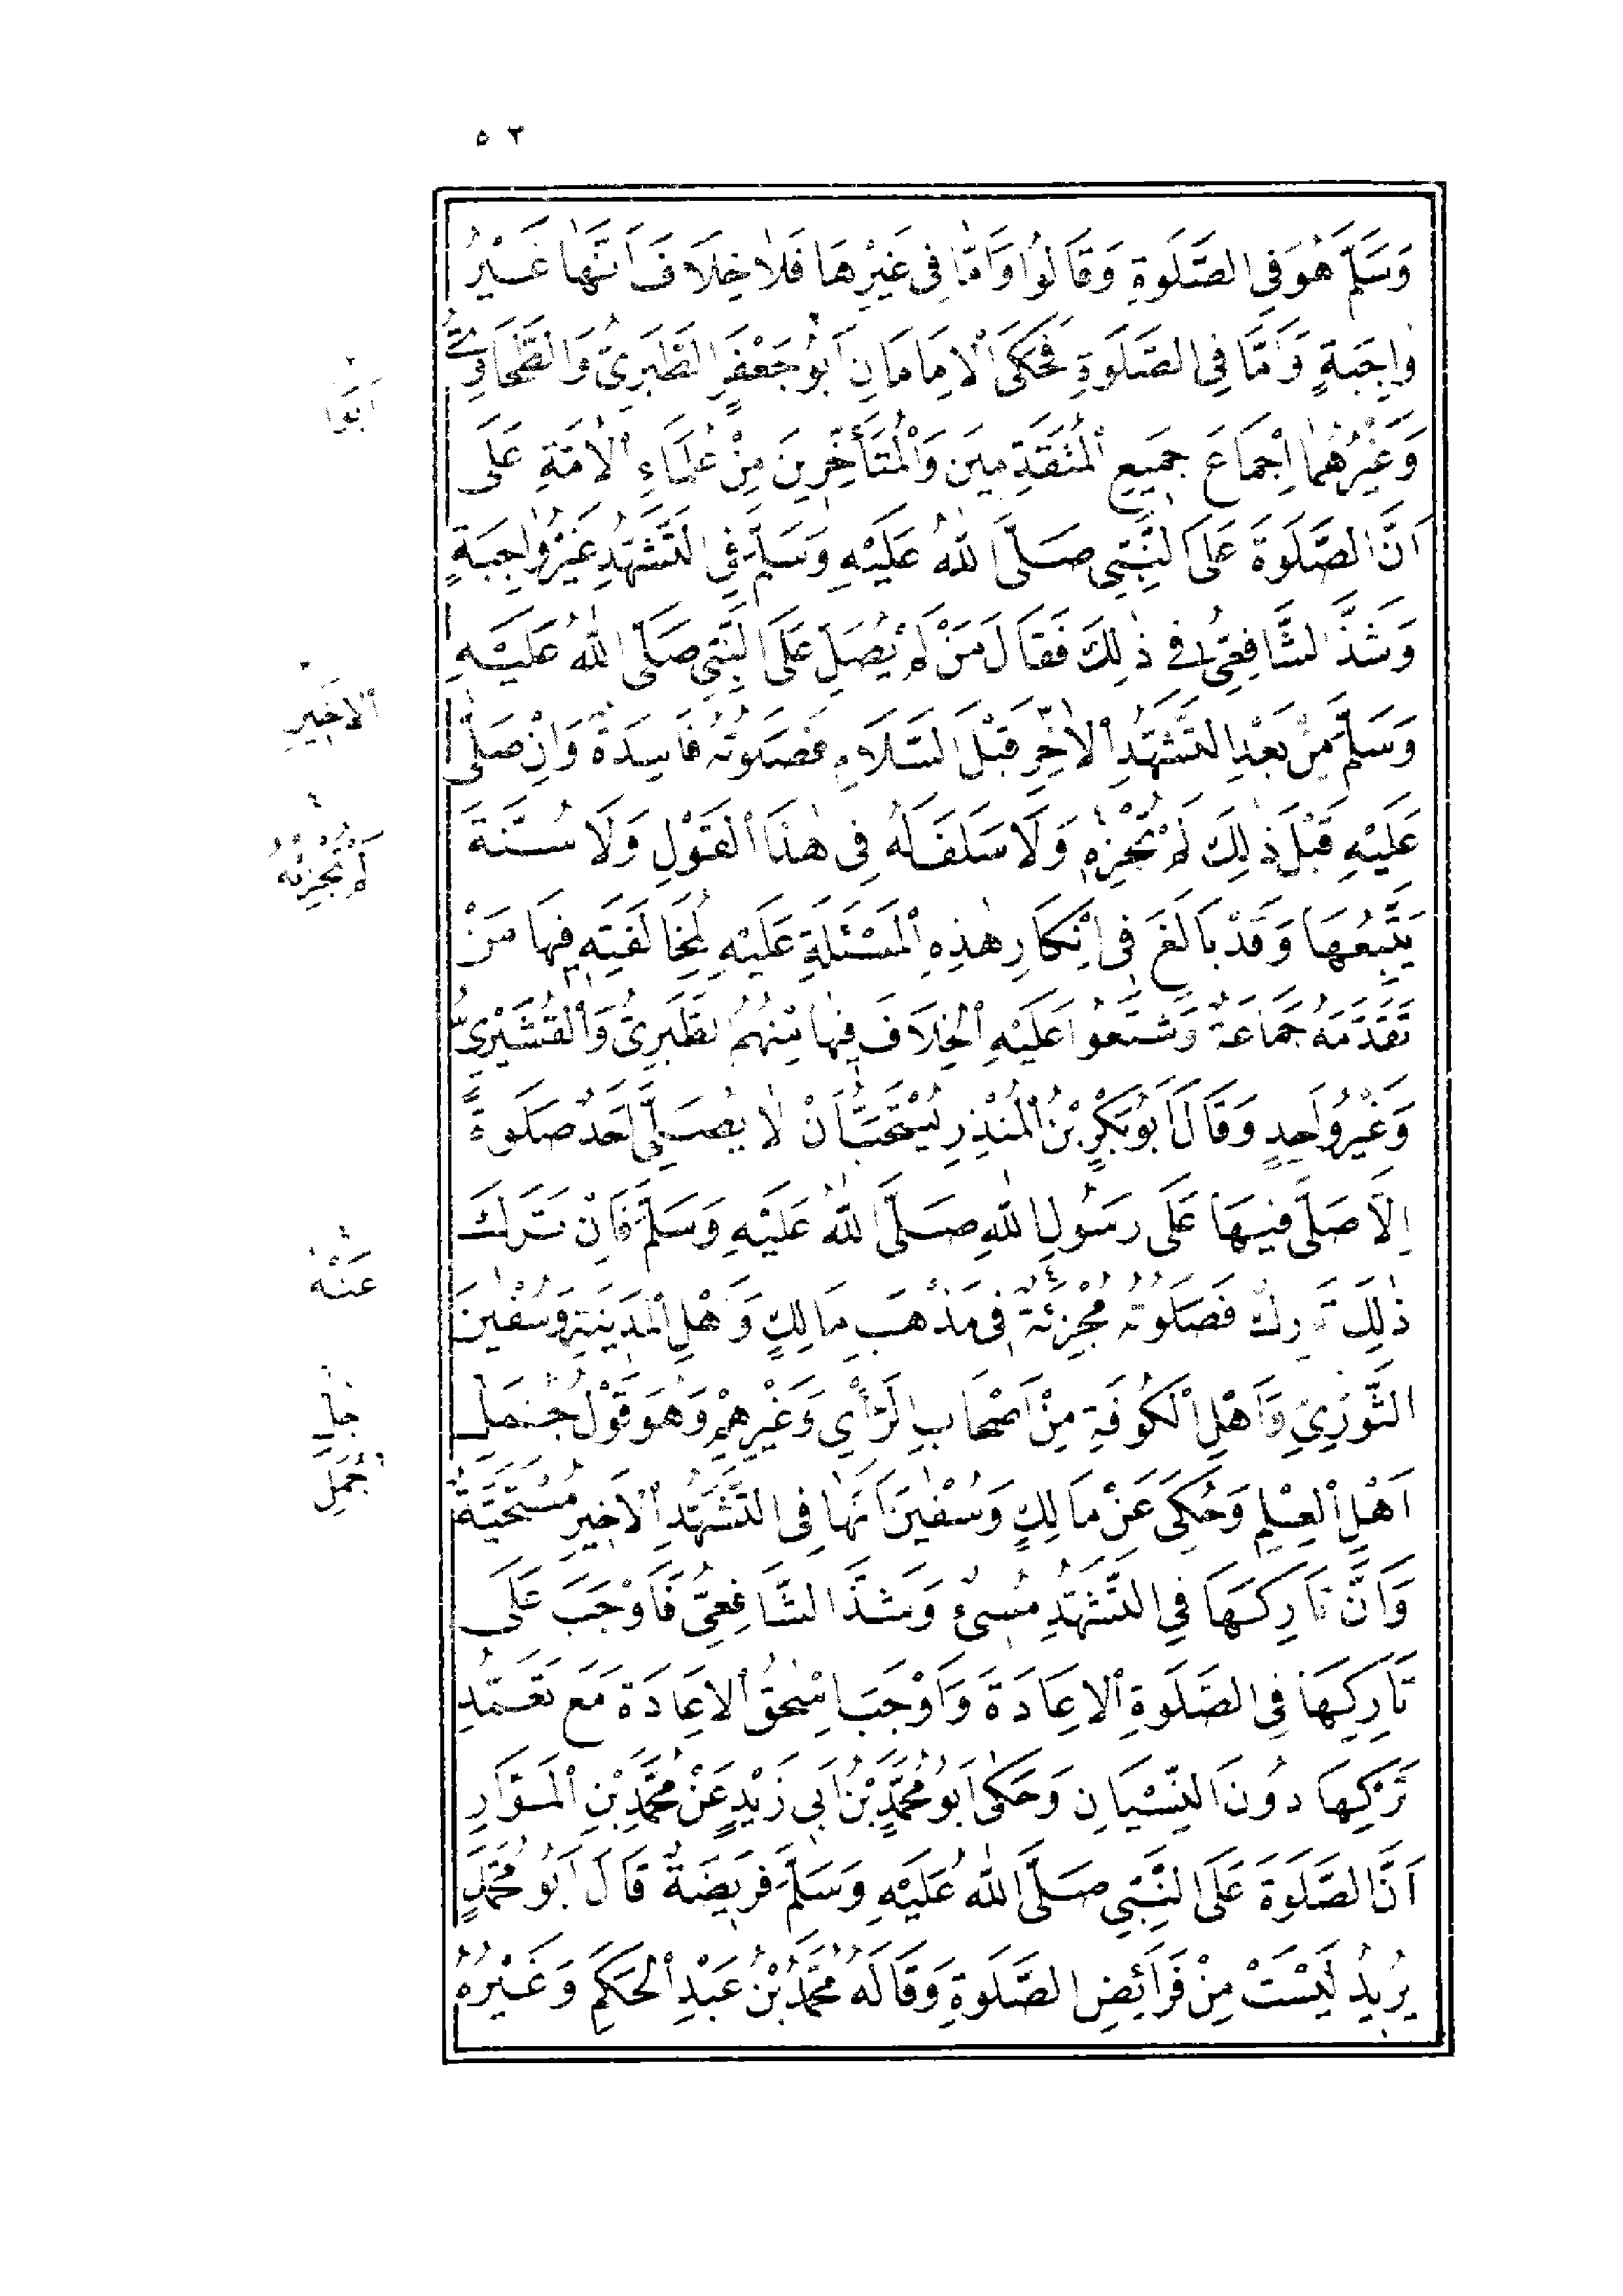 ٥٢
وَسَلَّمَ هُوَ فِي الصَّلَوةِ وَقَالُوا وَاَمَّا فِي غَيْرِهَا فَلاَ خِلَافَ اَنَّهَا غَيْرُ
وَاجِبَةٍ وَاَمَّا فِي الصَّلَوةِ فَحَكَى الْاِمَامَانِ اَبُو جَعْفَرٍ الطَّبَرِىُّ وَالطَّحَاوِىُّ
وَغَيْرُهُمَا اِجْمَاعَ جَمِيعِ الْمُتَقَدِّمِينَ وَالْمُتَأَخِّرِينَ مِنْ عُلَمَاءِ الْاُمَّةِ عَلَى
اَنَّ الصَّلَوةَ عَلَى النَّبِىِّ صَلَّى اللهُ عَلَيْهِ وَسَلَّمَ فِي التَّشَهُّدِ غَيْرُ وَاجِبَةٍ
وَشَذَّ الشَّافِعِىُّ فِي ذٰلِكَ فَقَالَ مَنْ لَمْ يُصَلِّ عَلَى النَّبِىِّ صَلَّى اللهُ عَلَيْهِ
وَسَلَّمَ مِنْ بَعْدِ التَّشَهُّدِ الْاٰخِرِ قَبْلَ السَّلَامِ فَصَلَوتُهُ فَاسِدَةٌ وَاِنْ صَلَّى
عَلَيْهِ قَبْلَ ذٰلِكَ لَمْ تُجْزِهِ وَلَا سَلَفَ لَهُ فِي هٰذَا الْقَوْلِ وَلَا سُنَّةَ
يَتَّبِعُهَا وَقَدْ بَالَغَ فِي اِنْكَارِ هٰذِهِ الْمَسْئَلَةِ عَلَيْهِ لِمُخَالَفَتِهِ فِيهَا مَنْ
تَقَدَّمَهُ جَمَاعَةٌ وَشَنَّعُوا عَلَيْهِ الْخِلَافَ فِيهَا مِنْهُمُ الطَّبَرِىُّ وَالْقُشَيْرِىُّ
وَغَيْرُ وَاحِدٍ وَقَالَ اَبُو بَكْرِ بْنُ الْمُنْذِرِ يُسْتَحَبُّ اَنْ لَا يُصَلِّىَ اَحَدٌ صَلَوةً
اِلَّا صَلَّى فِيهَا عَلَى رَسُولِ اللهِ صَلَّى اللهُ عَلَيْهِ وَسَلَّمَ فَاِنْ تَرَكَ
ذٰلِكَ تَارِكٌ فَصَلَوتُهُ مُجْزِئَةٌ فِي مَذْهَبِ مَالِكٍ وَاَهْلِ الْمَدِينَةِ وَسُفْيٰنَ
الثَّوْرِىِّ وَاَهْلِ الْكُوفَةِ مِنْ اَصْحَابِ الرَّأْىِ وَغَيْرِهِمْ وَهُوَ قَوْلُ جُمَلِ
اَهْلِ الْعِلْمِ وَحُكِىَ عَنْ مَالِكٍ وَسُفْيٰنَ اَنَّهَا فِي التَّشَهُّدِ الْاَخِيرِ مُسْتَحَبَّةٌ
وَاَنَّ تَارِكَهَا فِي التَّشَهُّدِ مُسِىءٌ وَشَذَّ الشَّافِعِىُّ فَاَوْجَبَ عَلَى
تَارِكِهَا فِي الصَّلَوةِ الْاِعَادَةَ وَاَوْجَبَ اِسْحٰقُ الْاِعَادَةَ مَعَ تَعَمُّدِ
تَرْكِهَا دُونَ النِّسْيَانِ وَحَكَى اَبُو مُحَمَّدٍ بْنُ اَبِي زَيْدٍ عَنْ مُحَمَّدِ بْنِ الْمَوَّازِ
اَنَّ الصَّلَوةَ عَلَى النَّبِىِّ صَلَّى اللهُ عَلَيْهِ وَسَلَّمَ فَرِيضَةٌ قَالَ اَبُو مُحَمَّدٍ
يُرِيدُ لَيْسَتْ مِنْ فَرَائِضِ الصَّلَوةِ وَقَالَهُ مُحَمَّدُ بْنُ عَبْدِ الْحَكَمِ وَغَيْرُهُ
اَبَوَا
الْاَخِيرِ
لَمْ تُجْزِئْهُ
عَنْهُ
جُلِّ
جُمَلِ